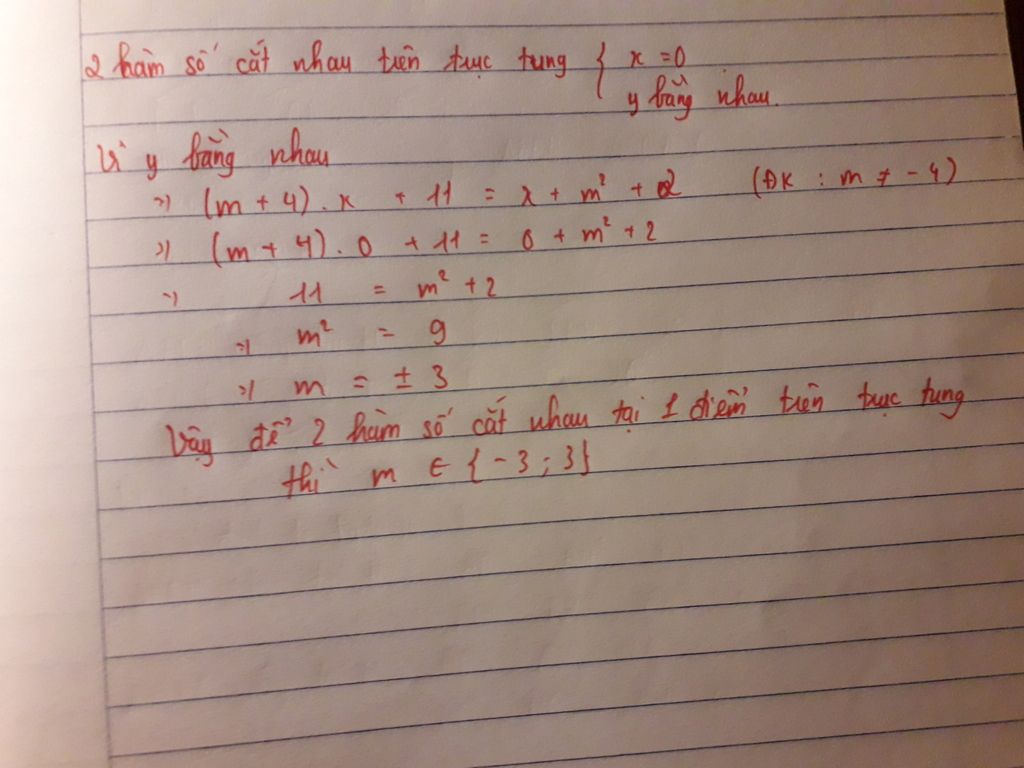 2 hàm số cắt nhau trên trục tung { x = 0
y bằng nhau.
Vì y bằng nhau
=> (m + 4) . x + 11 = x + m² + 2 (ĐK : m ≠ - 4)
=> (m + 4) . 0 + 11 = 0 + m² + 2
=> 11 = m² + 2
=> m² = 9
=> m = ± 3
Vậy để 2 hàm số cắt nhau tại 1 điểm trên trục tung
thì m ∈ { - 3 ; 3}